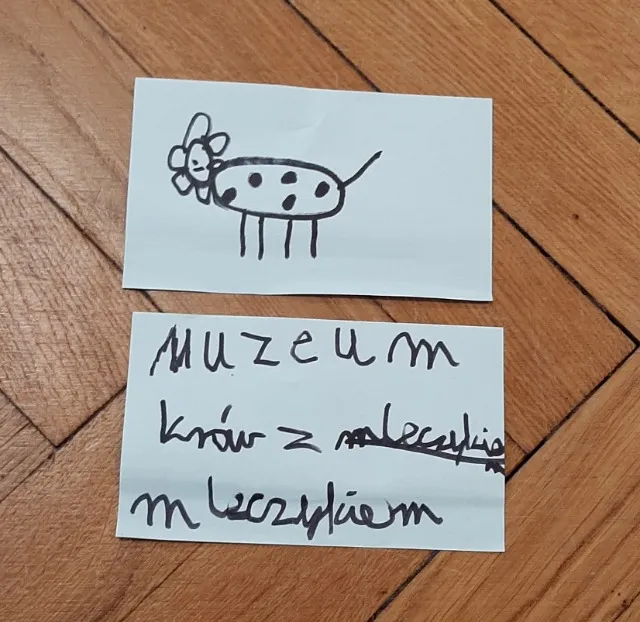 MUZEUM
krów z mleczykie
m
mleczykiem